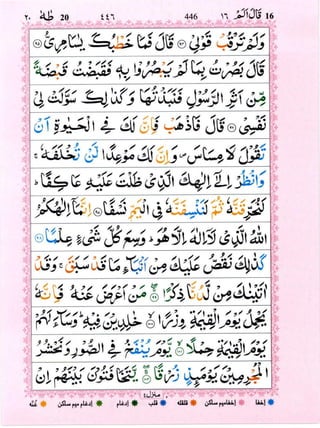 16 قَالَ اَلَمْ ١٦ 446 ٤٤٦ 20 طٰهٰ ٢٠
وَلَمْ تَرْقُبْ قَوْلِيْ ۝٩٤ قَالَ فَمَا خَطْبُكَ يٰسَامِرِيُّ ۝٩٥
قَالَ بَصُرْتُ بِمَا لَمْ يَبْصُرُوْا بِهٖ فَقَبَضْتُ قَبْضَةً
مِّنْ اَثَرِ الرَّسُوْلِ فَنَبَذْتُهَا وَكَذٰلِكَ سَوَّلَتْ لِيْ
نَفْسِيْ ۝٩٦ قَالَ فَاذْهَبْ فَاِنَّ لَكَ فِي الْحَيٰوةِ اَنْ
تَقُوْلَ لَا مِسَاسَ ۪ وَاِنَّ لَكَ مَوْعِدًا لَّنْ تُخْلَفَهٗ ۚ
وَانْظُرْ اِلٰٓى اِلٰهِكَ الَّذِيْ ظَلْتَ عَلَيْهِ عَاكِفًا ؕ
لَنُحَرِّقَنَّهٗ ثُمَّ لَنَنْسِفَنَّهٗ فِي الْيَمِّ نَسْفًا ۝٩٧ اِنَّمَآ اِلٰهُكُمُ
اللّٰهُ الَّذِيْ لَآ اِلٰهَ اِلَّا هُوَ ؕ وَسِعَ كُلَّ شَيْءٍ عِلْمًا ۝٩٨
كَذٰلِكَ نَقُصُّ عَلَيْكَ مِنْ اَنْۢبَآءِ مَا قَدْ سَبَقَ ۚ وَقَدْ
اٰتَيْنٰكَ مِنْ لَّدُنَّا ذِكْرًا ۝٩٩ مَنْ اَعْرَضَ عَنْهُ فَاِنَّهٗ
يَحْمِلُ يَوْمَ الْقِيٰمَةِ وِزْرًا ۝١٠٠ خٰلِدِيْنَ فِيْهِ ؕ وَسَآءَ لَهُمْ
يَوْمَ الْقِيٰمَةِ حِمْلًا ۝١٠١ يَّوْمَ يُنْفَخُ فِي الصُّوْرِ وَنَحْشُرُ
الْمُجْرِمِيْنَ يَوْمَئِذٍ زُرْقًا ۝١٠٢ يَّتَخَافَتُوْنَ بَيْنَهُمْ اِنْ
منزل ٤
اخفا اخفا میم ساکن قلقله قلب ادغام ادغام میم ساکن غنه